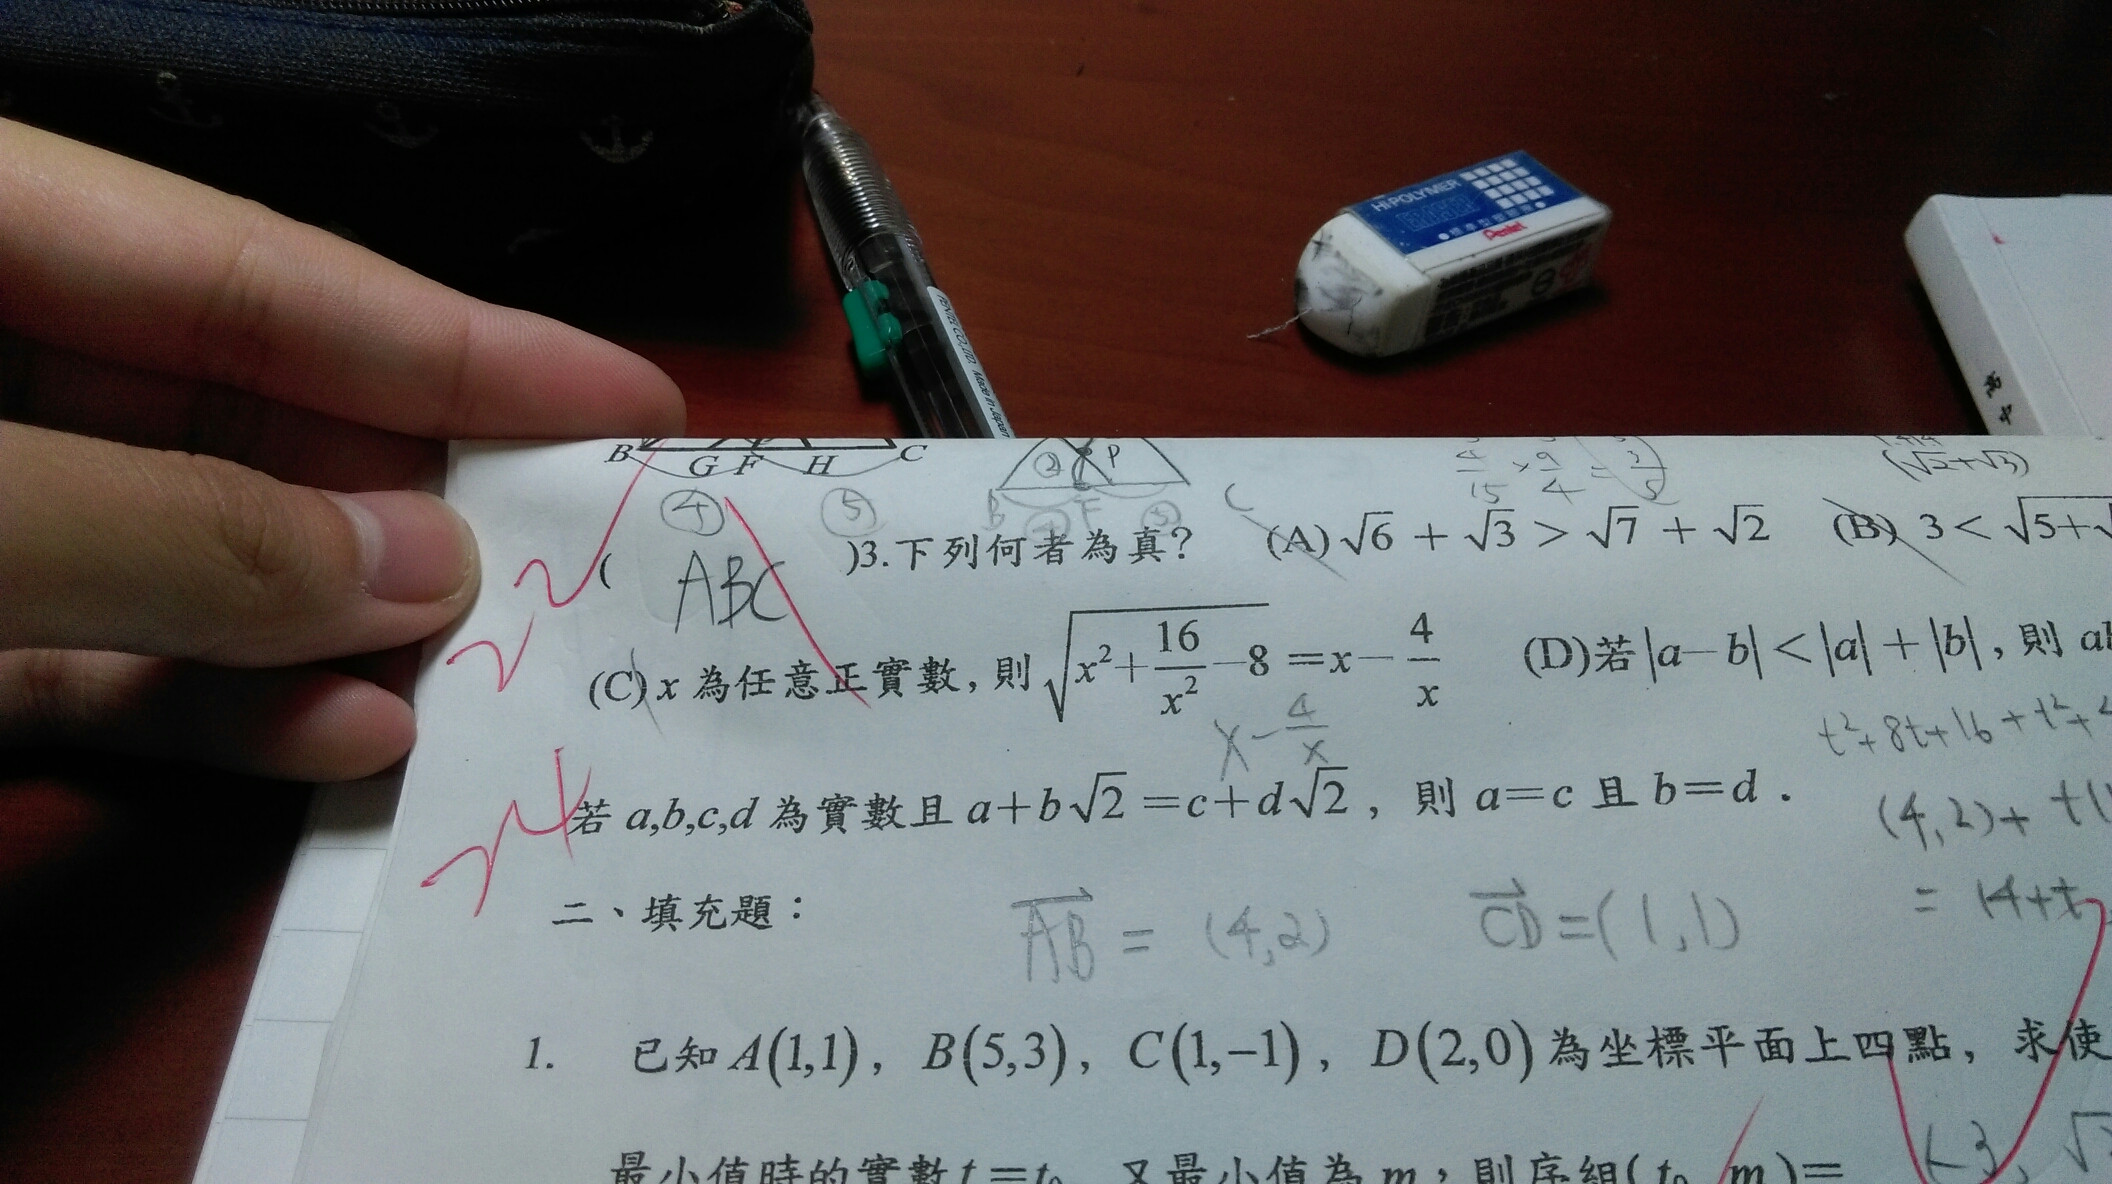 Hi-POLYMER
Pentel
PENTEL CO.,LTD. Made in Japan
B G F H C
④ ⑤
② P
B F
4/15 × 9/4 = 3/5
(√2+√3)
( ABC )3.下列何者為真? (A) √6 + √3 > √7 + √2 (B) 3 < √5+√
(C) x 為任意正實數, 則 √(x²+16/x²−8) = x−4/x (D)若|a−b|<|a|+|b|, 則
x−4/x
t²+8t+16+t²+4
若 a,b,c,d 為實數且 a+b√2=c+d√2, 則 a=c 且 b=d.
(4,2)+t(1
=(4+t,
二、填充題:
AB = (4,2) CD=(1,1)
1. 已知 A(1,1), B(5,3), C(1,−1), D(2,0)為坐標平面上四點, 求使
最小值時的實數 t=t₀, 又最小值為 m, 則序組(t₀, m)=
(-3, √2